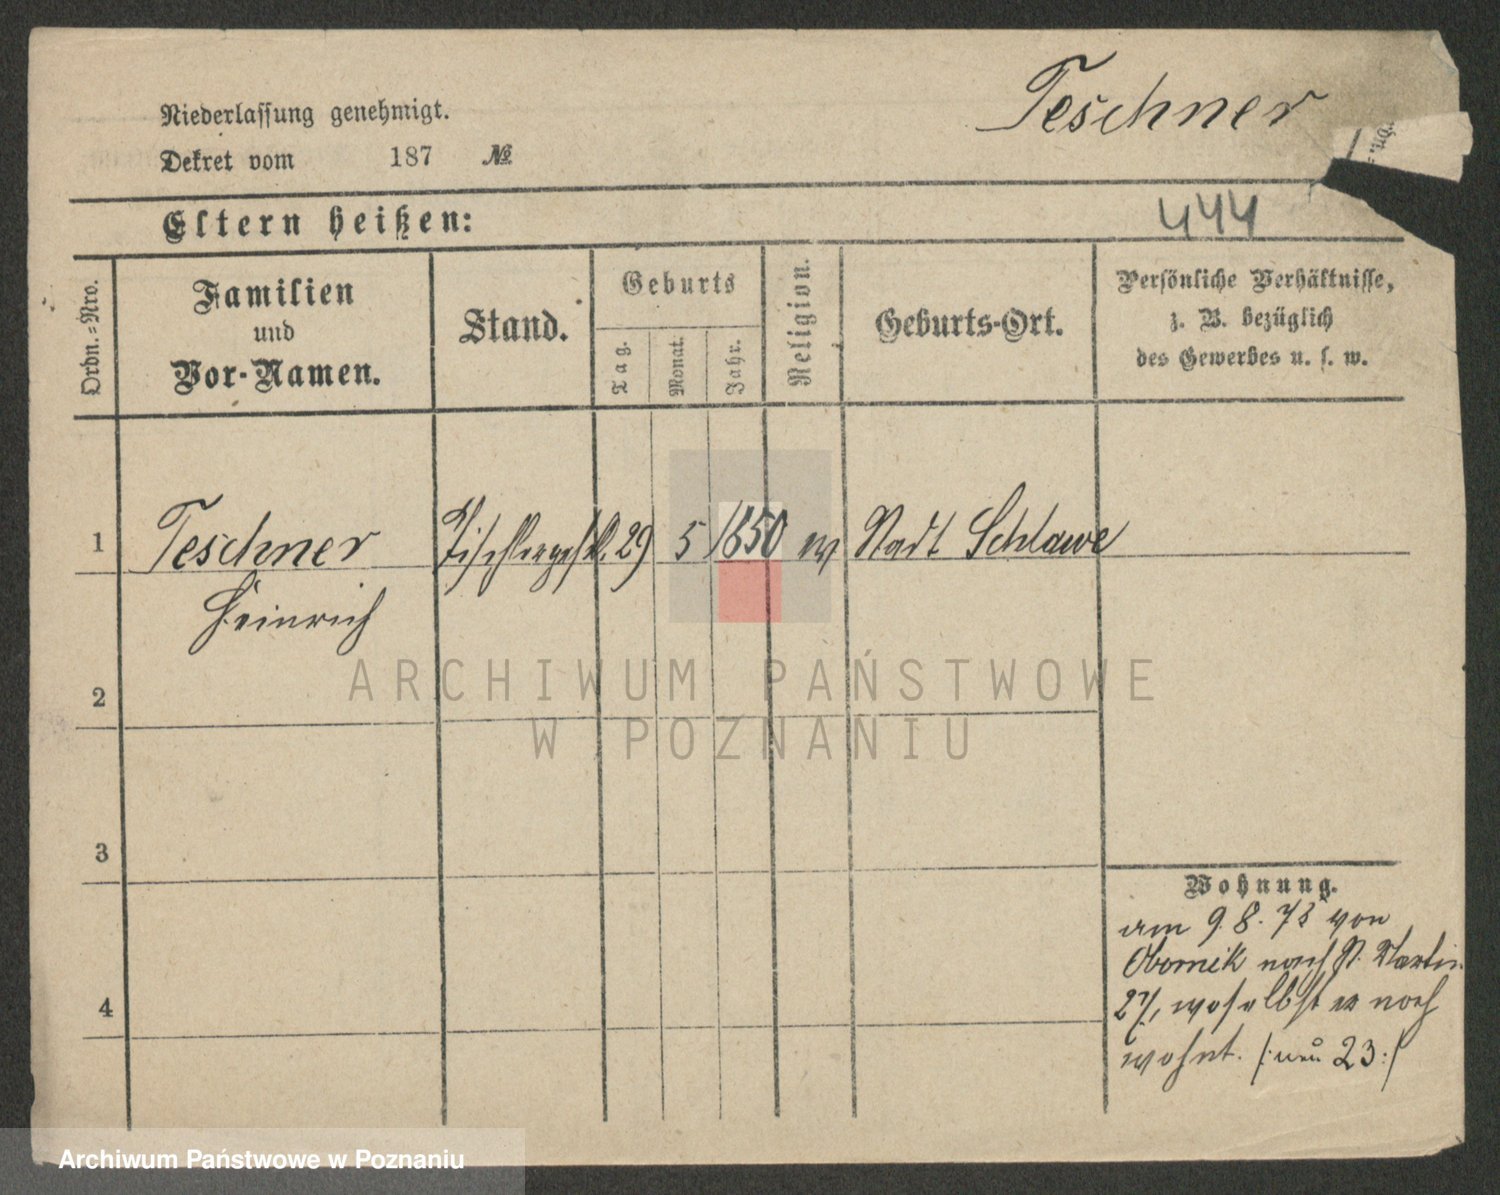 Teschner
Niederlassung genehmigt.
Dekret vom 187 №
444
Eltern heißen:
Ordn.=Nro.
Familien
und
Vor-Namen.
Stand.
Geburts
Tag.
Monat.
Jahr.
Religion.
Geburts-Ort.
Persönliche Verhältnisse,
z. B. bezüglich
des Gewerbes u. s. w.
1 Teschner Tischlerges. 29 5 1850 ev Stadt Schlawe
Heinrich
2
3
4
Wohnung.
am 9. 8. 73 von
Obornik nach St. Martin
27, woselbst er noch
wohnt. /: neu 23 :/
ARCHIWUM PAŃSTWOWE
W POZNANIU
Archiwum Państwowe w Poznaniu